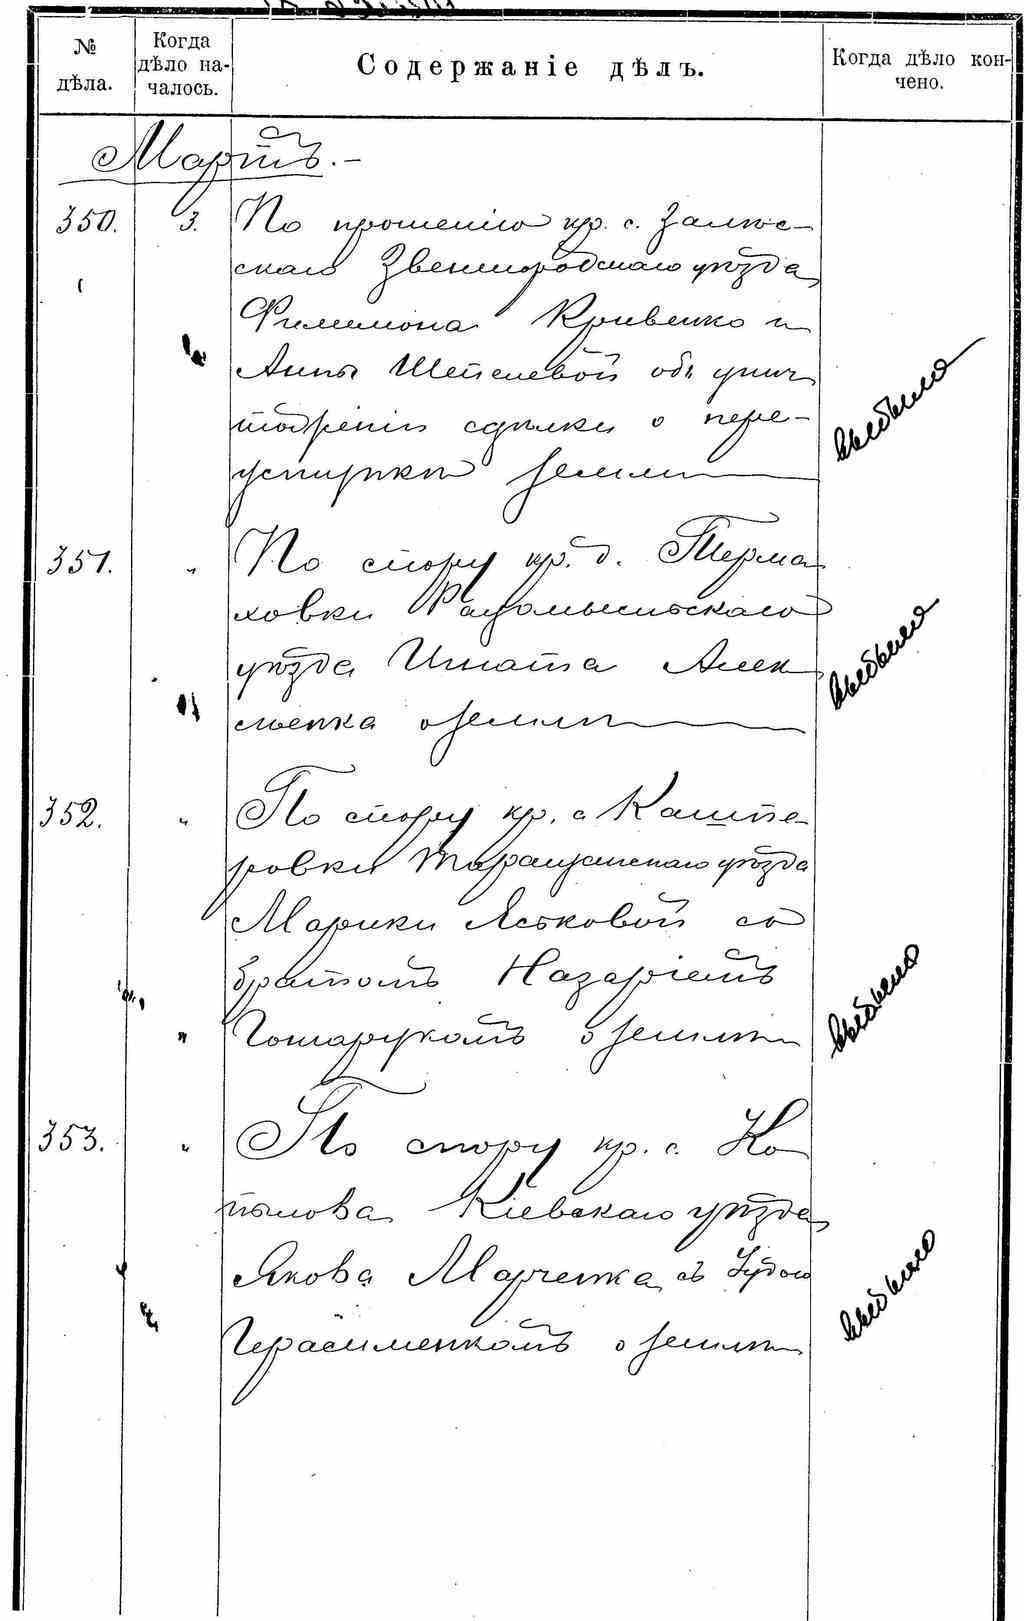 № дѣла.
Когда дѣло на-
чалось.
Содержаніе дѣлъ.
Когда дѣло кон-
чено.
Мартъ.
350. 3. По прошенію кр. с. Залѣс-
скаго Звенигородскаго уѣзда
Филимона Кривенко и
Анны Шепелевой объ унич
тоженіи сдѣлки о пере-
уступкѣ земли
выбыло
351. " По спору кр. д. Терма
ховки Радомысльскаго
уѣзда Игната Алек
сѣенка о землѣ
выбыло
352. " По спору кр. с Кашпе-
ровки Таращанскаго уѣзда
Марики Яськовой съ
братомъ Назаріемъ
Гончарукомъ о землѣ
выбыло
353. " По спору кр. с. Ко
пылова Кіевскаго уѣзда
Якова Марченка съ
Герасименкомъ о землѣ
выбыло